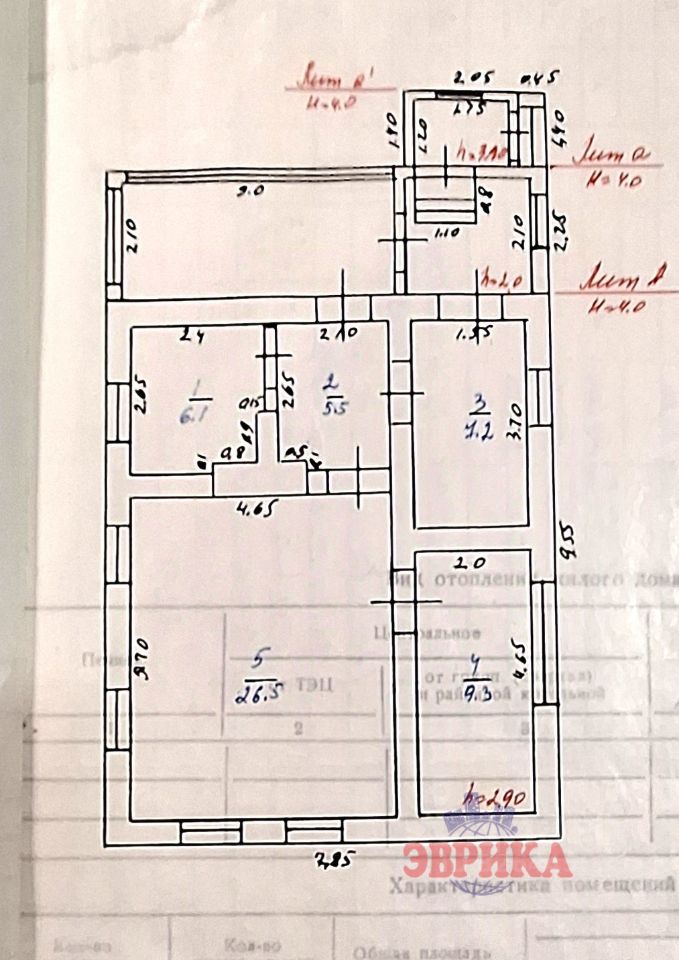 Лит а'
H=4.0
2.05
0.45
1.75
1.40
1.20
1.40
h=2.10
Лит а
H=4.0
9.0
0.8
2.10
1.10
2.10
2.25
h=2.0
Лит А
H=4.0
2.4
2.10
1.55
2.65
1
6.1
2.65
2
5.5
3
7.2
3.70
0.15
0.9
0.8
0.5
4.65
9.55
2.0
Вид отопления жилого дома
Центральное
5
26.5
5.70
от ТЭЦ
4
9.3
4.65
2
3
h=2.90
7.85
ЭВРИКА
Характеристика помещений
Кол-во
Кол-во
Общая площадь